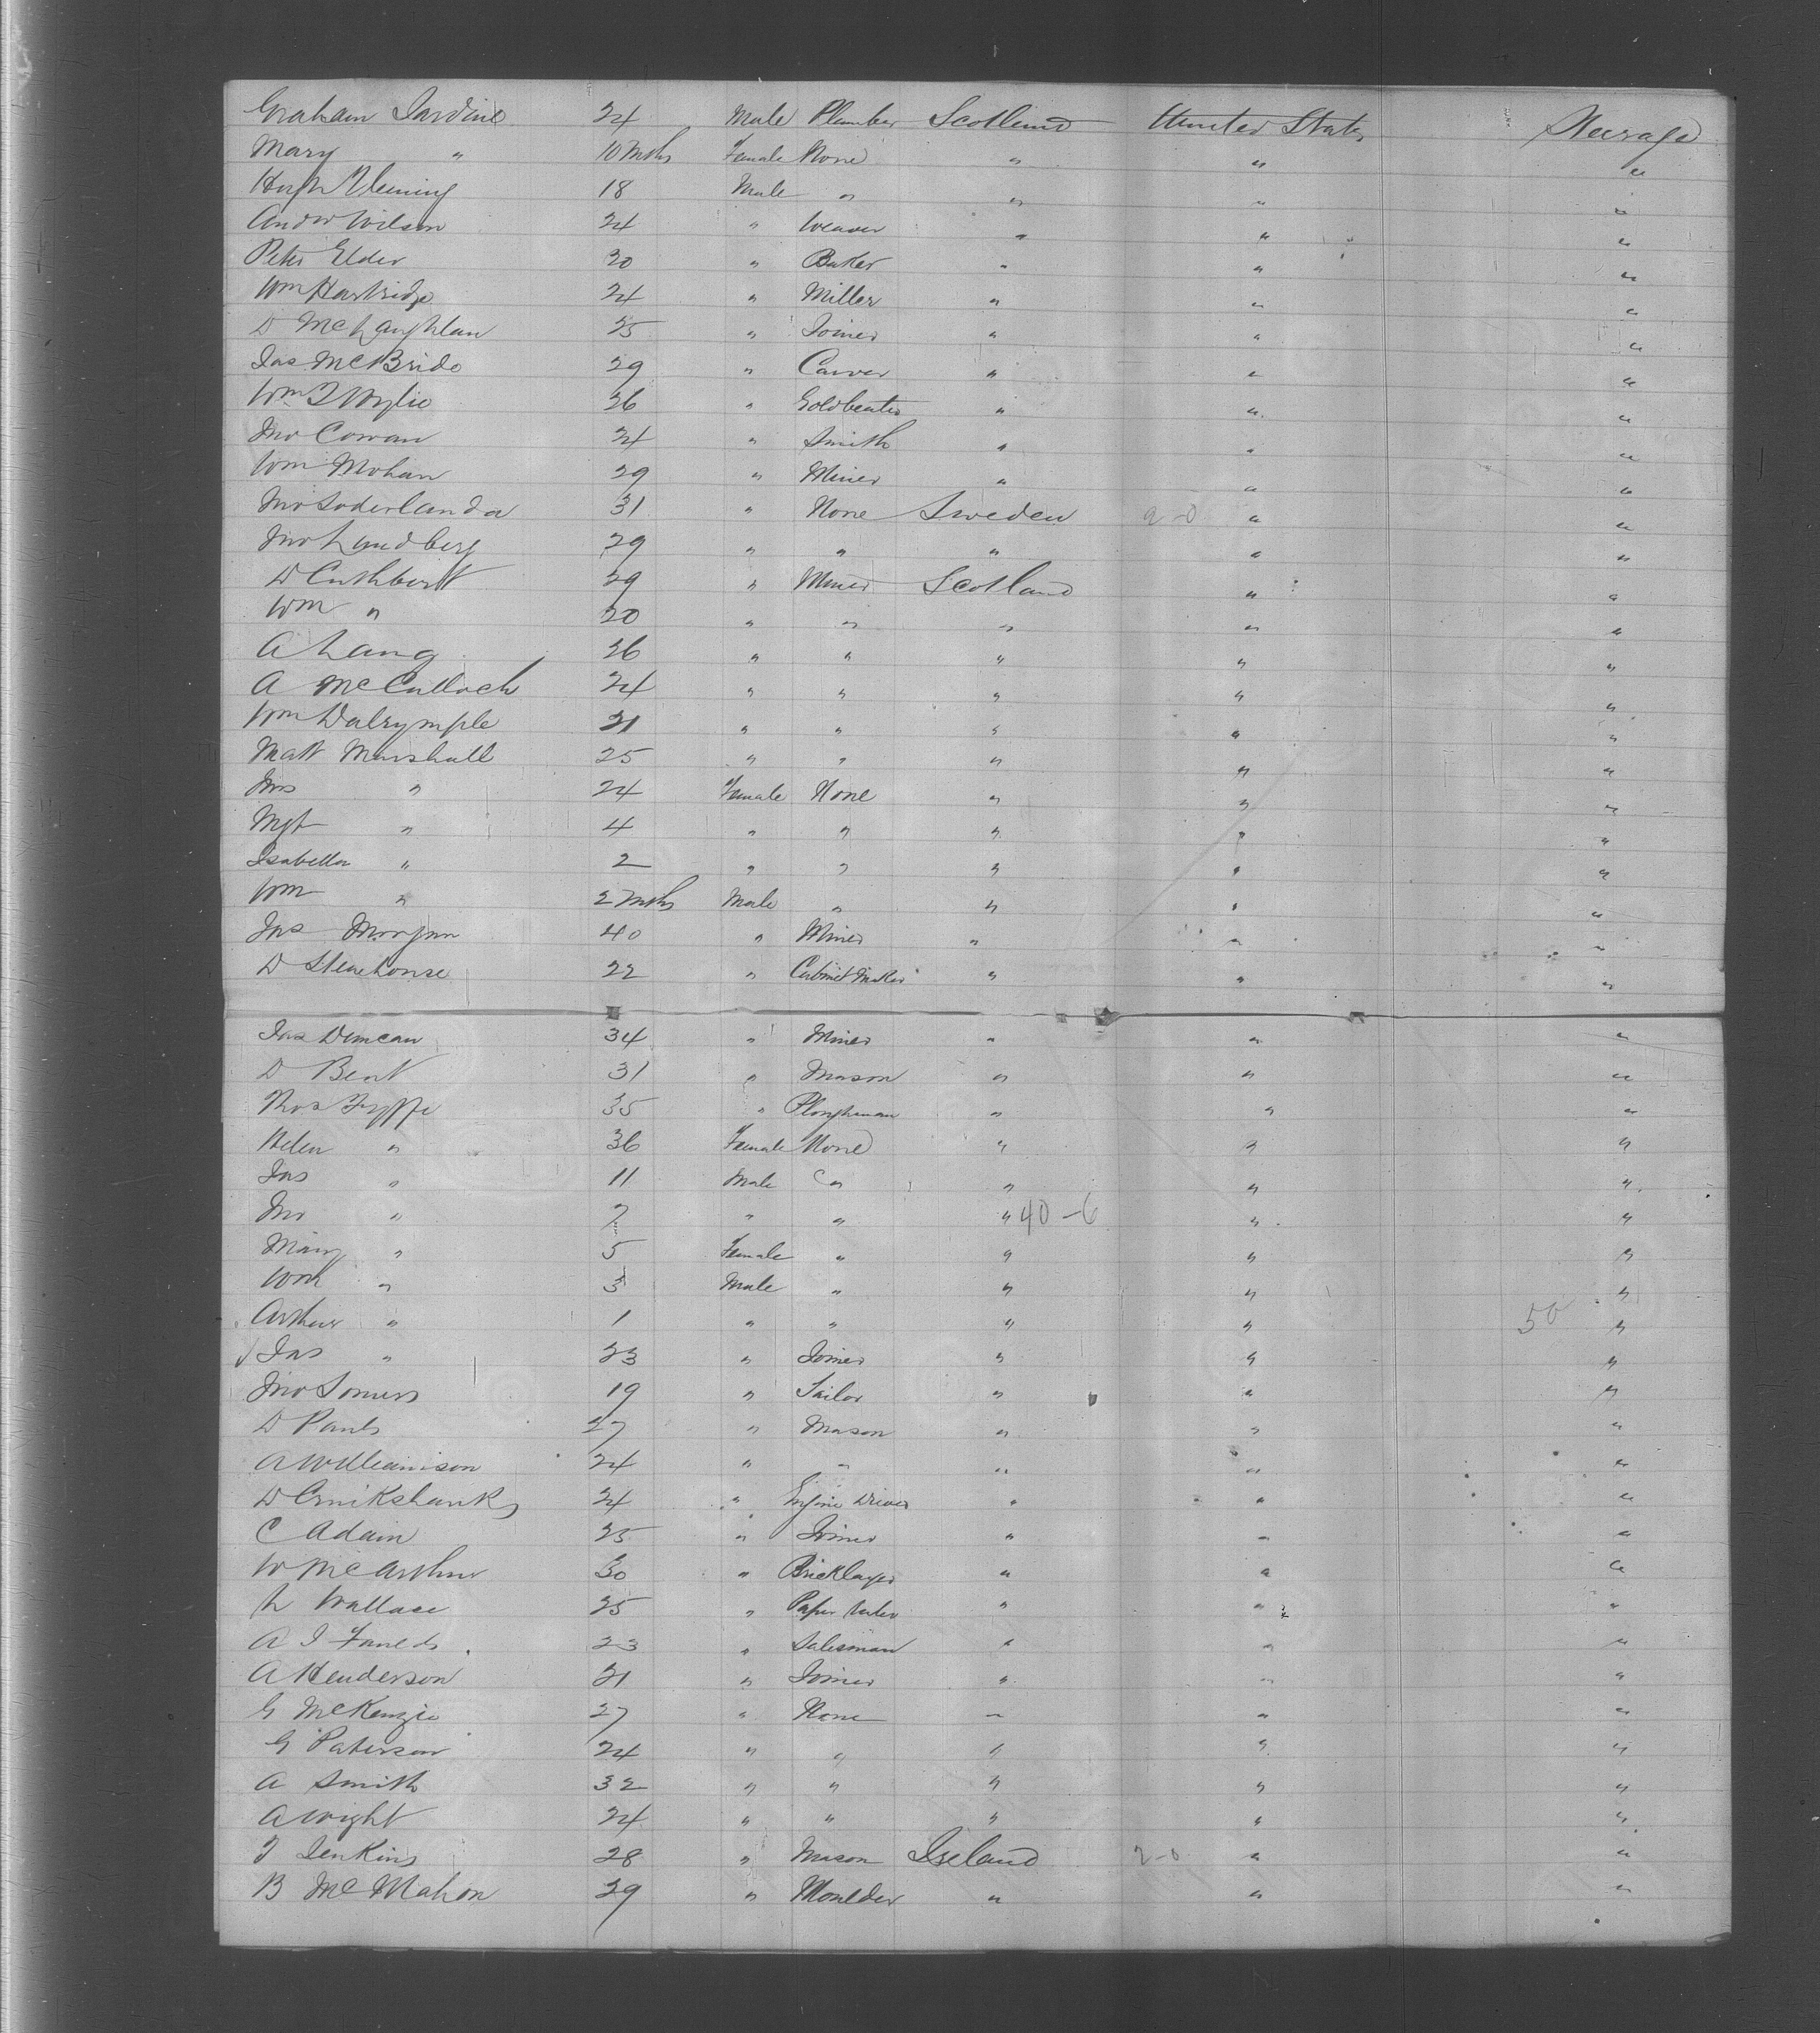 Graham Jardine 24 Male Plumber Scotland United States Steerage
Mary " 10 Mths Female None " " "
Hugh Fleming 18 Male " " " "
Andw Wilson 24 " Weaver " " "
Peter Elder 20 " Baker " " "
Wm 24 " Miller " " "
D McLaughlan 25 " Joiner " " "
Jas McBride 29 " Carver " " "
Wm Wylie 26 " Goldbeater " " "
Jno Cowan 24 " Smith " " "
Wm Mohan 29 " Miner " " "
Jno Soderlanda 31 " None Sweden 2-0 " "
Jno Lundberg 29 " " " " "
D Cuthbert 29 " Miner Scotland " "
Wm " 20 " " " " "
A Lang 26 " " " " "
A McCulloch 24 " " " " "
Wm Dalrymple 21 " " " " "
Matt Marshall 25 " " " " "
Mrs " 24 Female None " " "
Mgt " 4 " " " " "
Isabella " 2 " " " " "
Wm " 2 Mths Male " " " "
Jas Morgan 40 " Miner " " "
D Stenhouse 22 " Cabinet Maker " " "
Jas Duncan 34 " Miner " " "
D Bent 31 " Mason " " "
Thos Fyffe 35 " Ploughman " " "
Helen " 36 Female None " " "
Jas " 11 Male " " " "
Jno " 7 " " " 40-6 " "
Mary " 5 Female " " " "
Wm " 3 Male " " " "
Arthur " 1 " " " " 50 "
Jas " 23 " Joiner " " "
Jno Somers 19 " Tailor " " "
D Pauls 27 " Mason " " "
A Williamson 24 " " " " "
D Cruikshanks 24 " Engine Driver " " "
C Adam 25 " Joiner " " "
W McArthur 30 " Bricklayer " " "
L Wallace 25 " Paper " " "
A J 23 " Salesman " " "
A Henderson 21 " Joiner " " "
G McKenzie 27 " None " " "
G Paterson 24 " " " " "
A Smith 32 " " " " "
A Wright 24 " " " " "
T Jenkins 28 " Mason Ireland 2-0 " "
B McMahon 29 " Moulder " " "